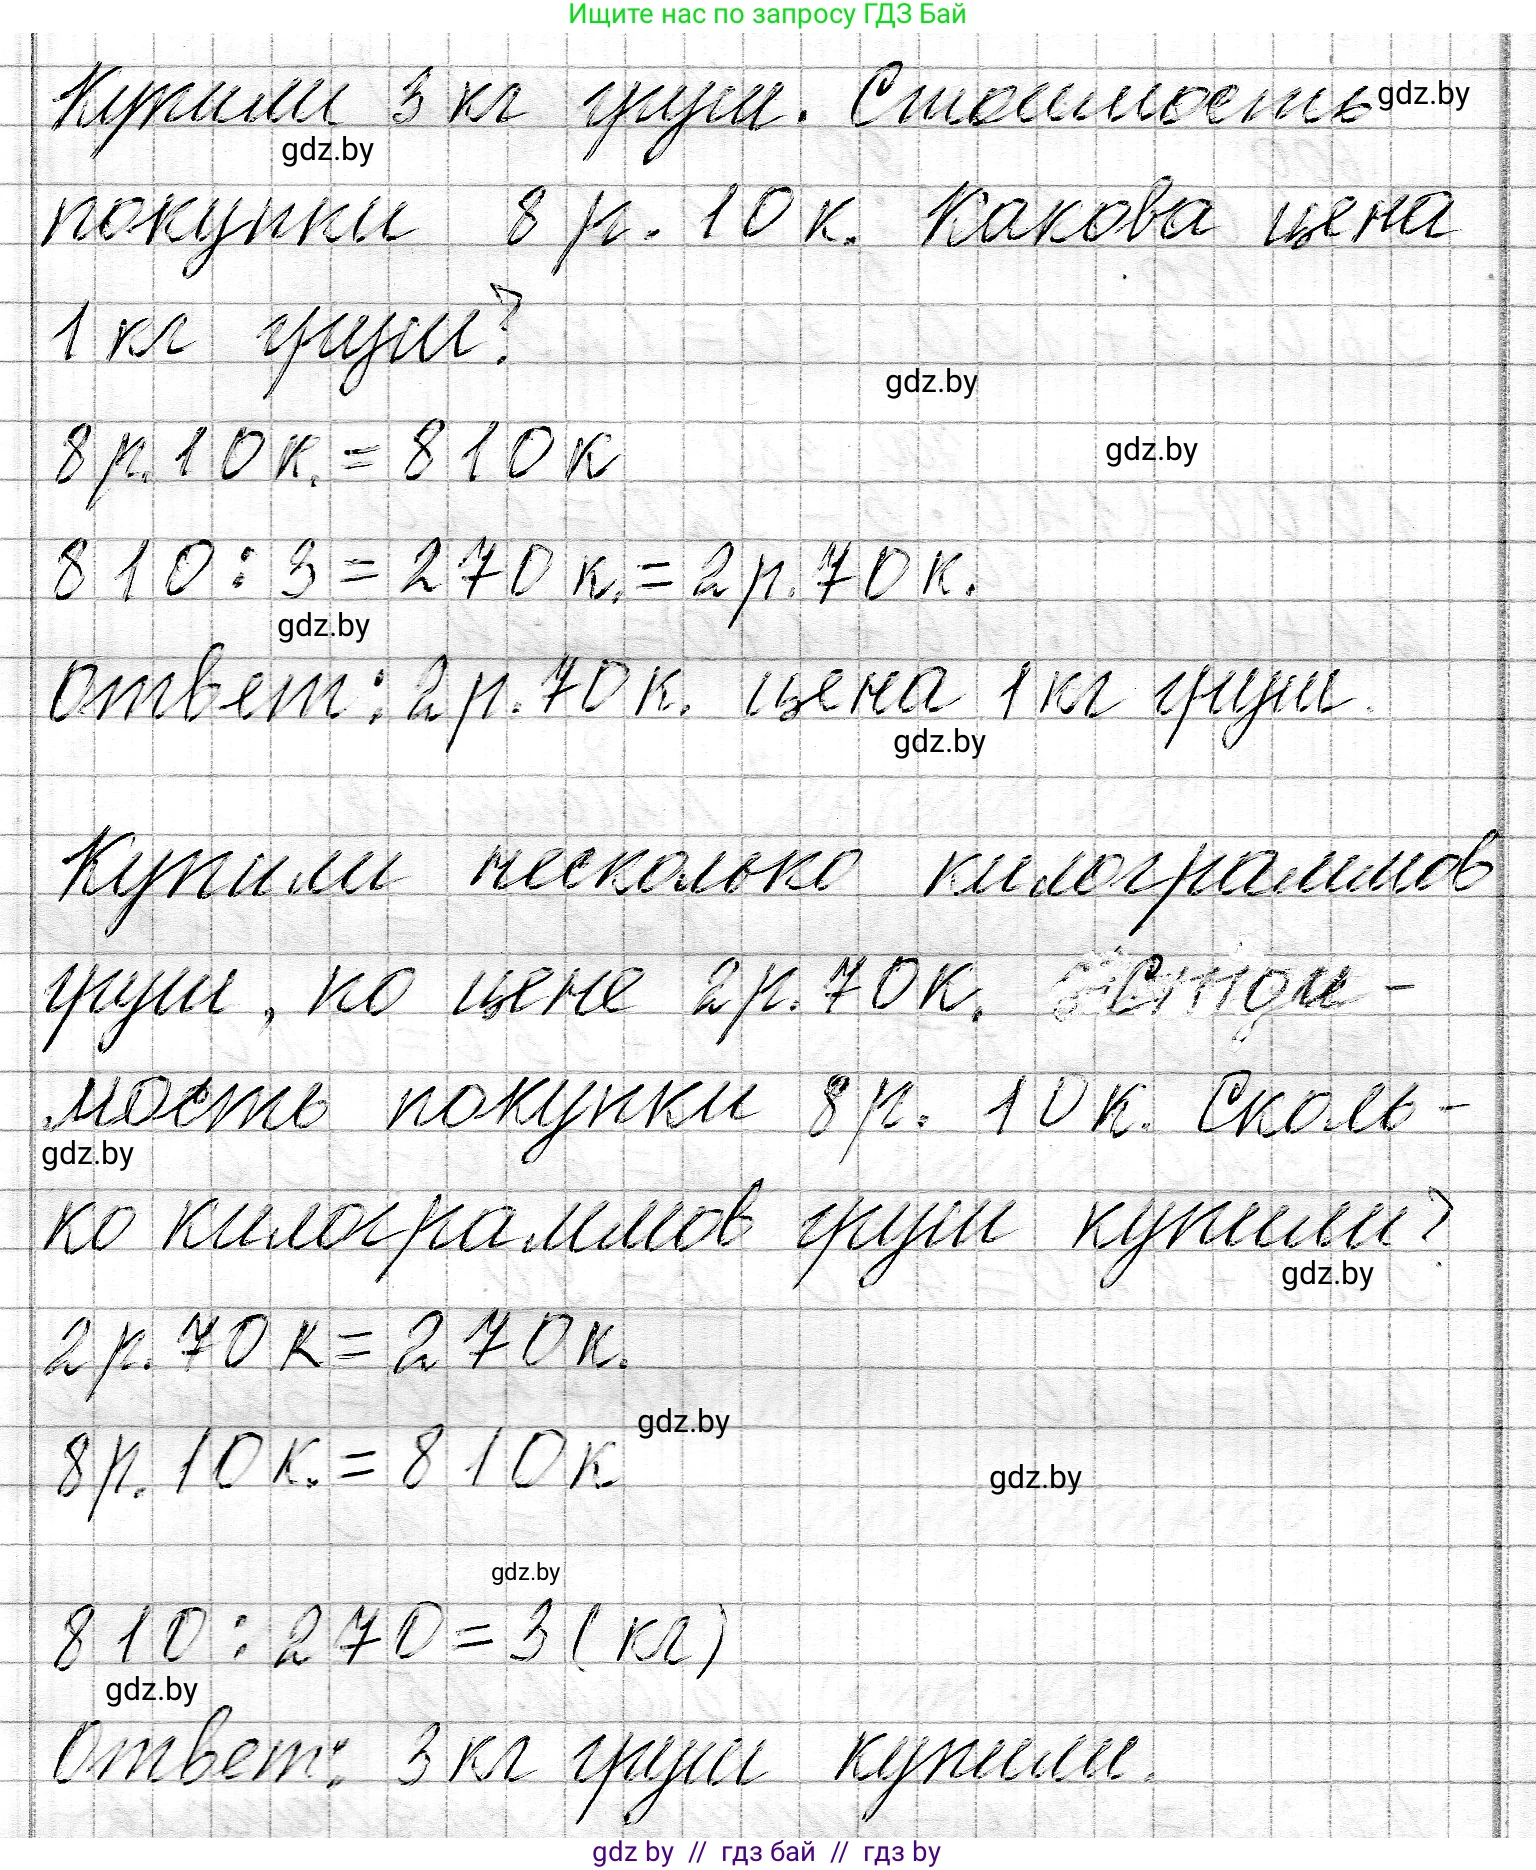 Ищите нас по запросу ГДЗ Бай
Купили 3 кг груш. Стоимость gdz.by
gdz.by
покупки 8 р. 10 к. Какова цена
1 кг груш?
gdz.by
8 р. 10 к. = 810 к
gdz.by
810 : 3 = 270 к. = 2 р. 70 к.
gdz.by
Ответ: 2 р. 70 к. цена 1 кг груш.
gdz.by
Купили несколько килограммов
груш, по цене 2 р. 70 к. Стои-
мость покупки 8 р. 10 к. Сколь-
gdz.by
ко килограммов груш купили?
gdz.by
2 р. 70 к = 270 к.
gdz.by
8 р. 10 к. = 810 к
gdz.by
gdz.by
810 : 270 = 3 (кг)
gdz.by
Ответ: 3 кг груш купили.
gdz by // гдз бай // гдз by